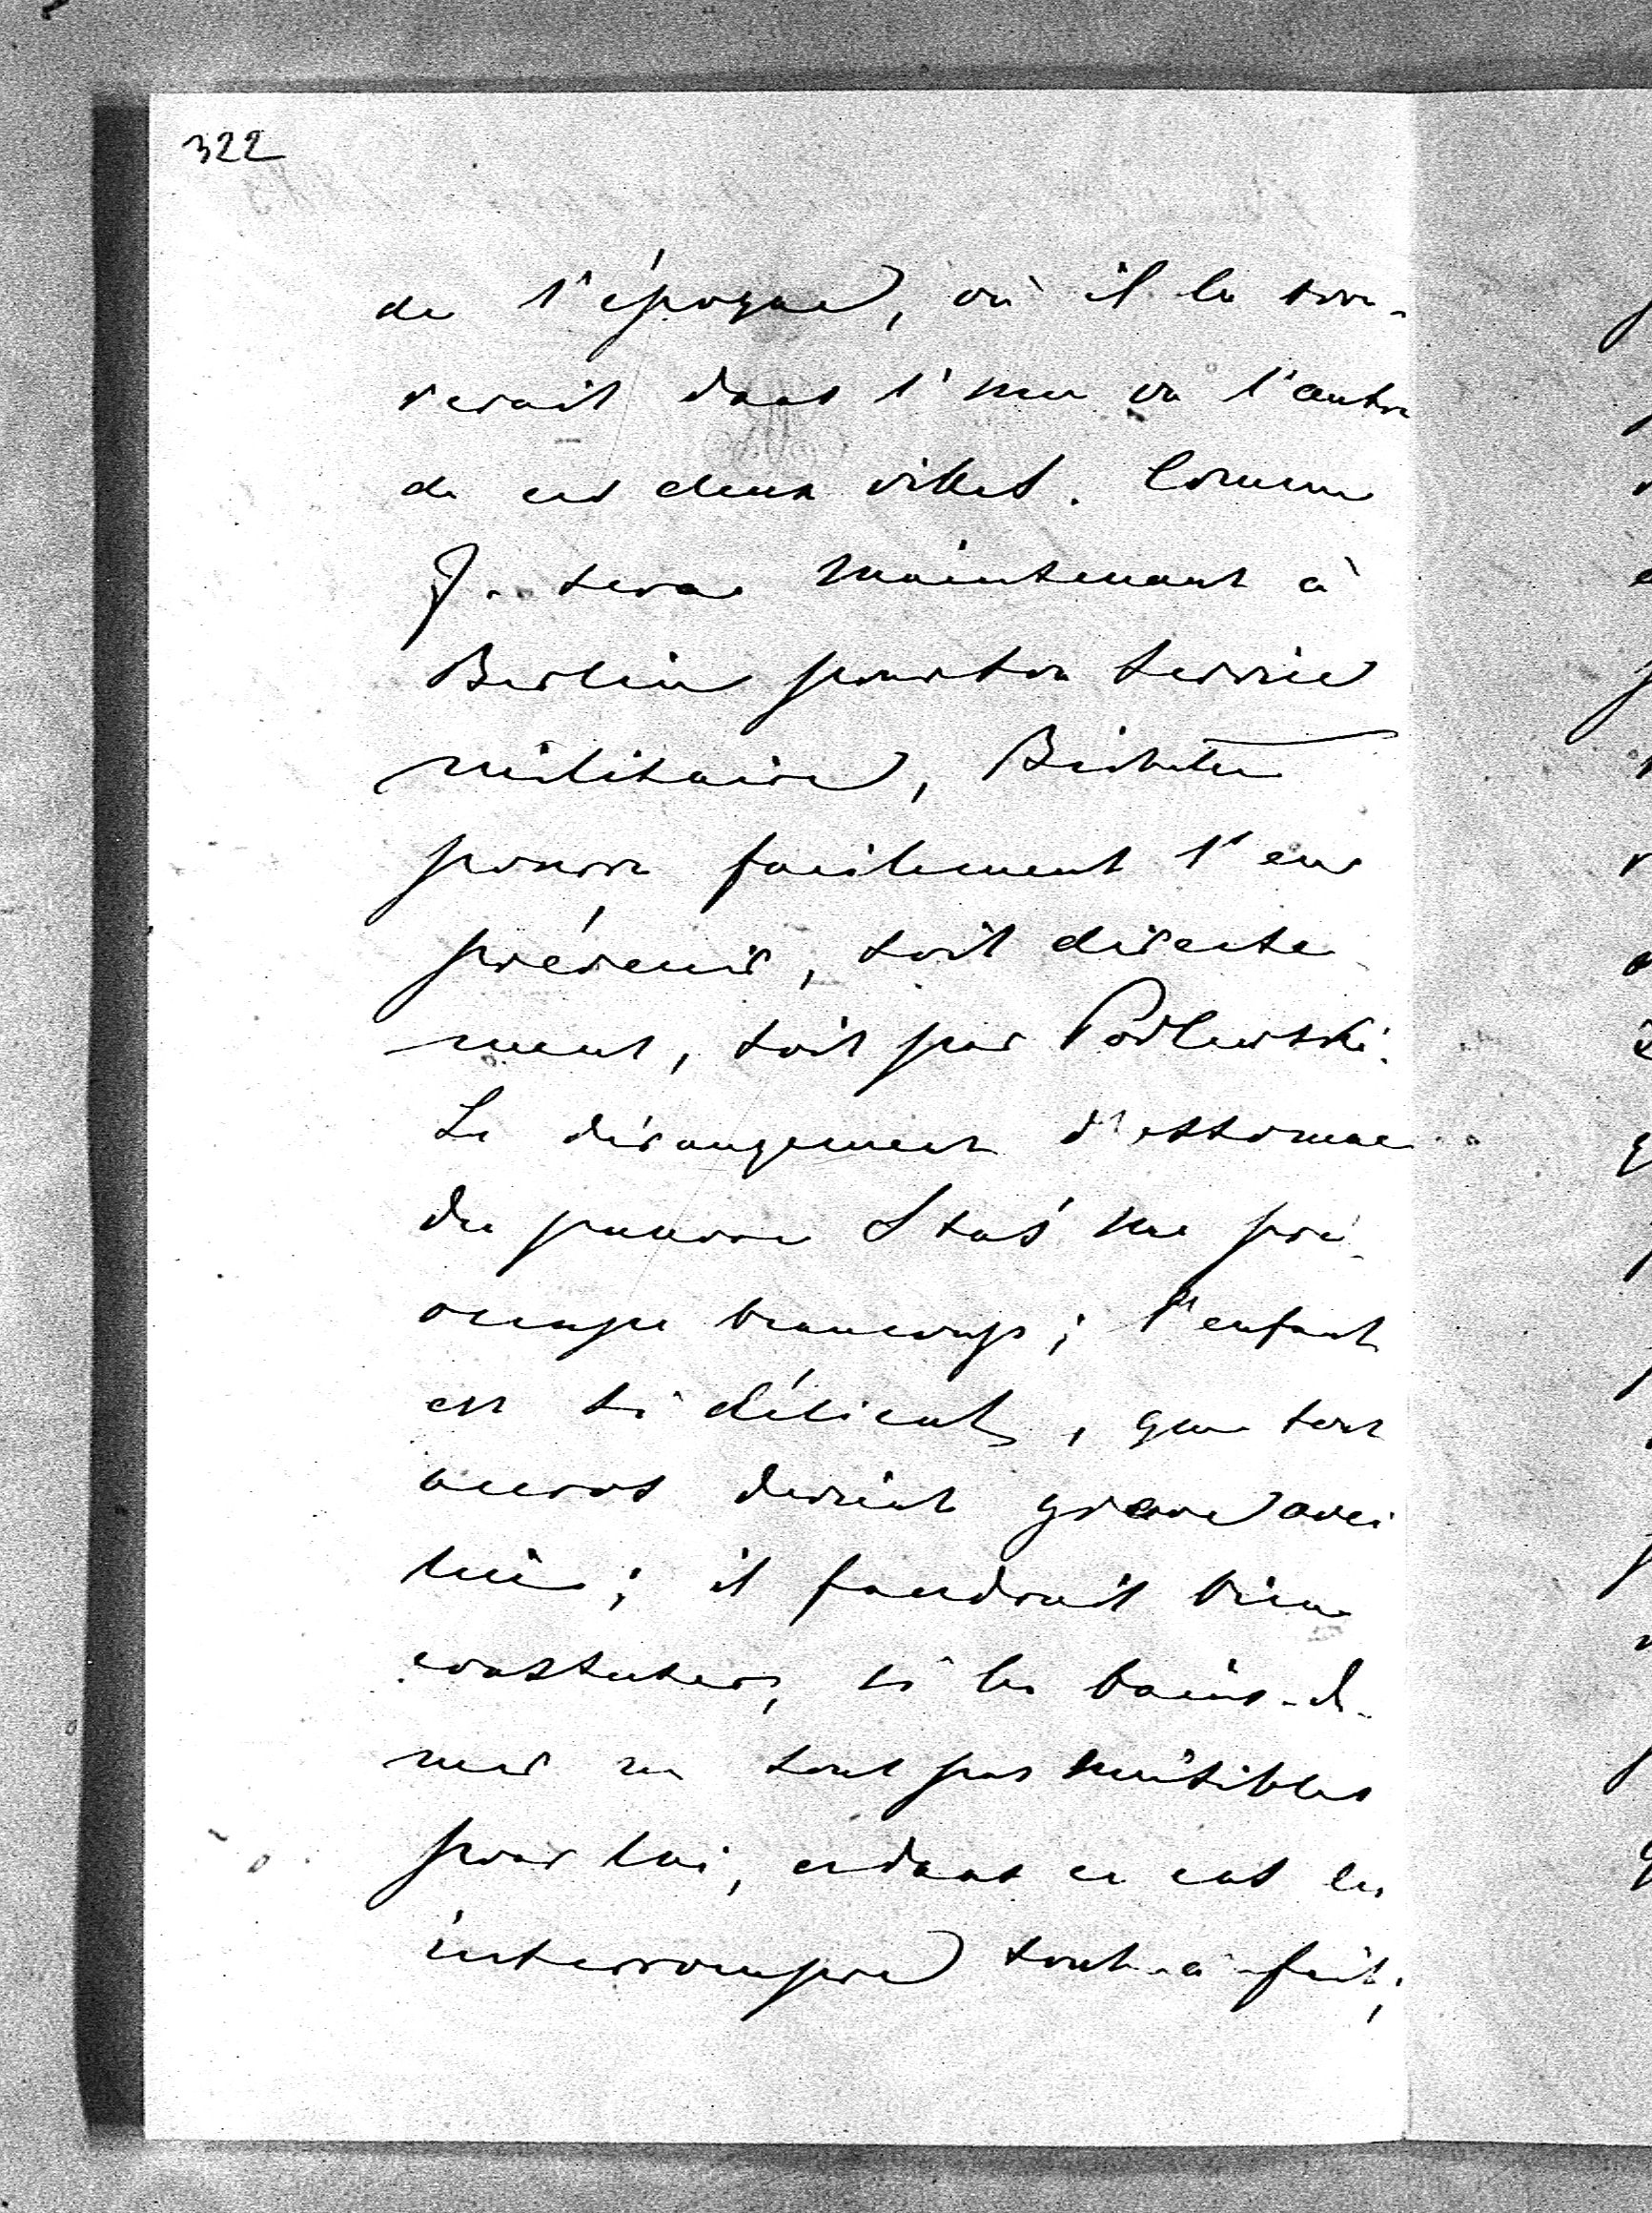 322
de l'époque, où il le trou-
verait dans l'une ou l'autre
de ces deux villes. Comme
J. sera maintenant à
Berlin pour son service
militaire,
pourra facilement l'en
prévenir, soit directe
ment, soit par Podlewski.
Le dérangement d'estomac
du pauvre Staś me pré-
occupe beaucoup; l'enfant
est si délicat, que tout
accros devient grave avec
lui; il faudrait bien
constater, si les bains-de-
mer ne sont pas nuisibles
pour lui, et dans ce cas les
interrompre tout-à-fait;